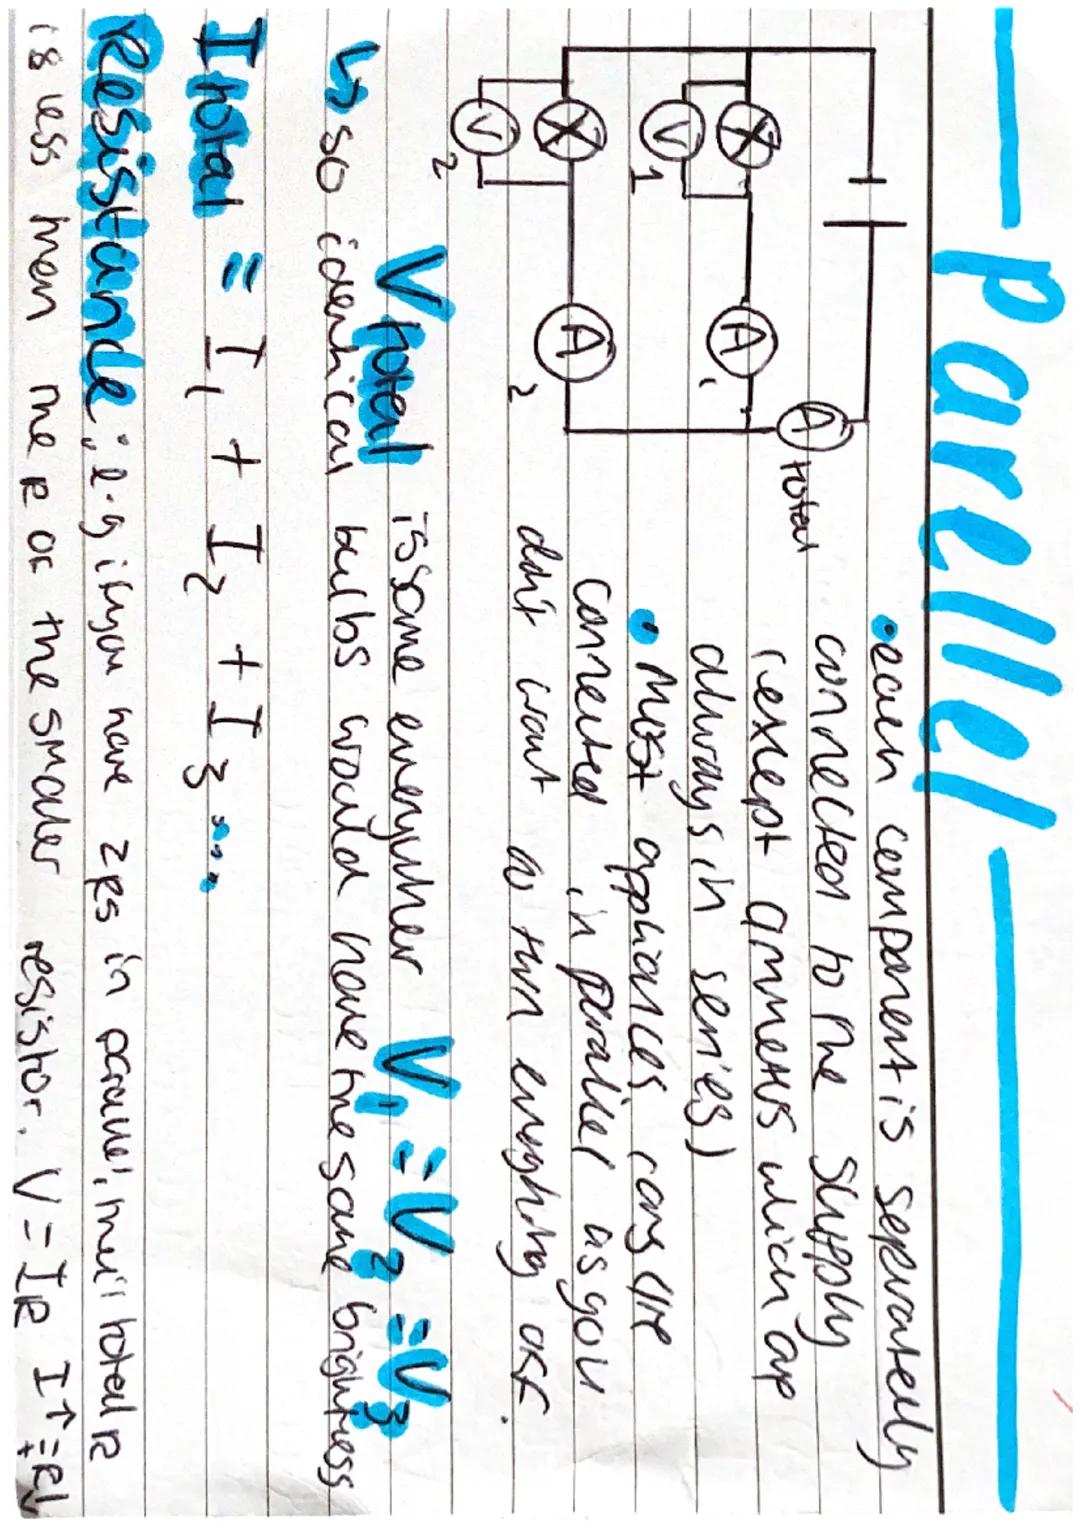 parellel
• each component is separately
connected to the supply
(except ammeters which are
always in series)
• Most appliances, cars
connected in parallel as you
don't want to turn everything off.
A total
V 1
A 1
V 2
A 2
V total is same everywher V1 = V2 = V3
↳ so identical bulbs would have the same brightness
I total = I1 + I2 + I3 ...
Resisitance; e.g if you have 2 Rs in parallel, their total R
is less than the R of the smaller resistor. V = IR I↑ = R↓